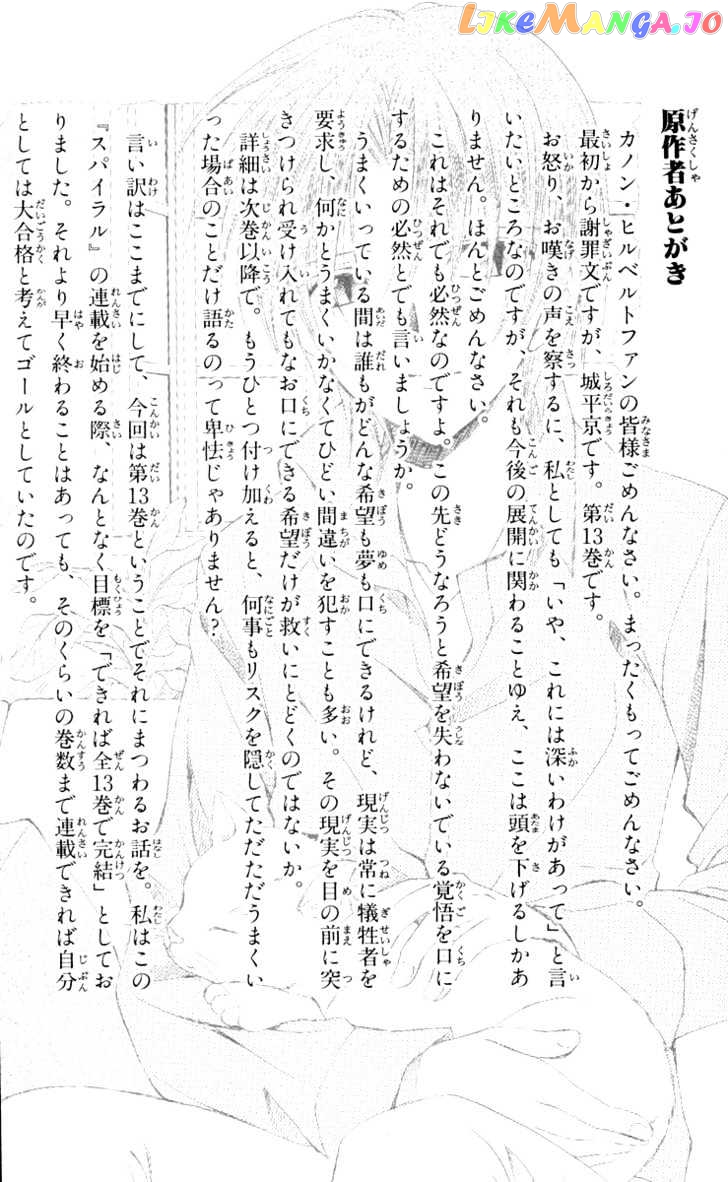 LIKEMANGA.IO
原作者あとがき
カノン・ヒルベルトファンの皆様ごめんなさい。まったくもってごめんなさい。
最初から謝罪文ですが、城平京です。第13巻です。
お怒り、お嘆きの声を察するに、私としても「いや、これには深いわけがあって」と言
いたいところなのですが、それも今後の展開に関わることゆえ、ここは頭を下げるしかあ
りません。ほんとごめんなさい。
これはそれでも必然なのですよ。この先どうなろうと希望を失わないでいる覚悟を口に
するための必然とでも言いましょうか。
うまくいっている間は誰もがどんな希望も夢も口にできるけれど、現実は常に犠牲者を
要求し、何かとうまくいかなくてひどい間違いを犯すことも多い。その現実を目の前に突
きつけられ受け入れてもなお口にできる希望だけが救いにとどくのではないか。
詳細は次巻以降で。もうひとつ付け加えると、何事もリスクを隠してただただうまくい
った場合のことだけ語るのって卑怯じゃありません?
言い訳はここまでにして、今回は第13巻ということでそれにまつわるお話を。私はこの
『スパイラル』の連載を始める際、なんとなく目標を「できれば全13巻で完結」としてお
りました。それより早く終わることはあっても、そのくらいの巻数まで連載できれば自分
としては大合格と考えてゴールとしていたのです。